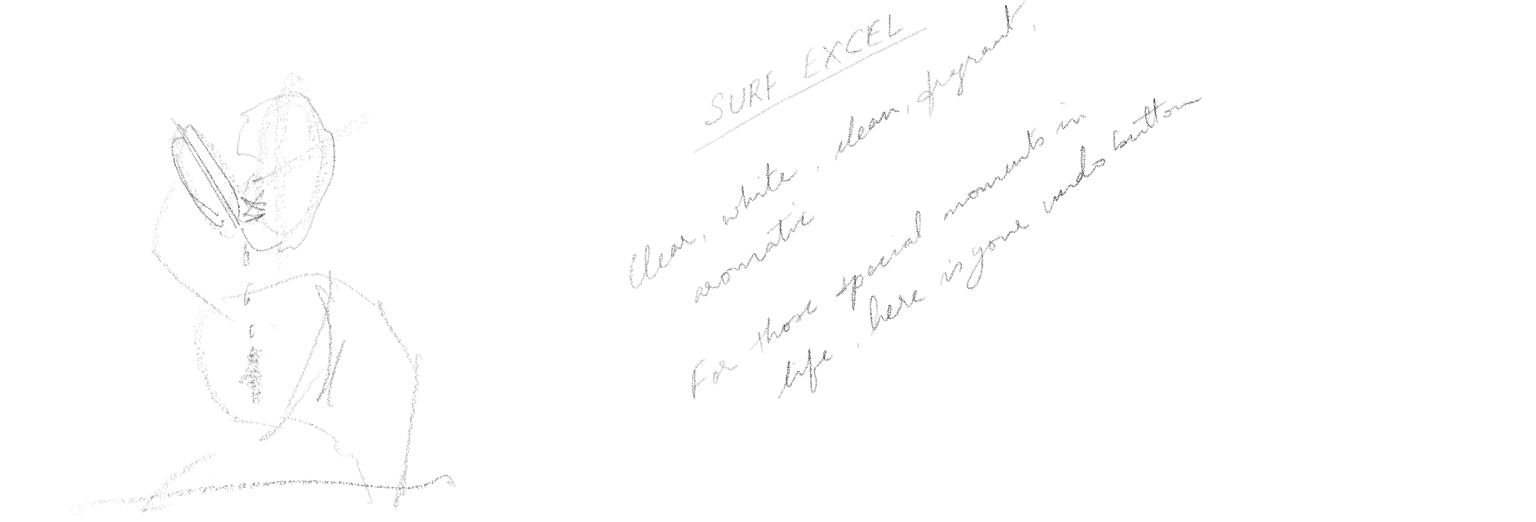 SURF EXCEL
Clear, white, clean, fragrant,
aromatic
For those special moments in
life, here is your undo button